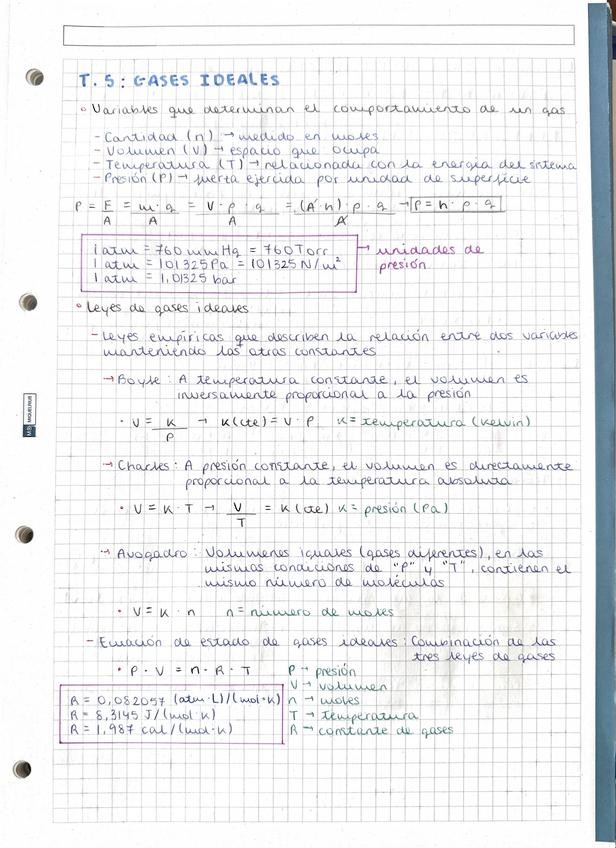 T. 5: GASES IDEALES
• Variables que determinan el comportamiento de un gas
- Cantidad (n) → medido en moles
- Volumen (V) → espacio que ocupa
- Temperatura (T) → relacionada con la energía del sistema
- Presión (P) → fuerza ejercida por unidad de superficie
P = F/A = m · g/A = V · ρ · g/A = (A · h) · ρ · g/A → P = h · ρ · g
1 atm = 760 mmHg = 760 Torr → unidades de
1 atm = 101325 Pa = 101325 N/m² presión
1 atm = 1,01325 bar
• Leyes de gases ideales
- Leyes empíricas que describen la relación entre dos variables
manteniendo las otras constantes
→ Boyle: A temperatura constante, el volumen es
inversamente proporcional a la presión
• V = K/P → K (cte) = V · P K = temperatura (Kelvin)
→ Charles: A presión constante, el volumen es directamente
proporcional a la temperatura absoluta
• V = K · T → V/T = K (cte) K = presión (Pa)
→ Avogadro: Volumenes iguales (gases diferentes), en las
mismas condiciones de "P" y "T", contienen el
mismo número de moléculas
• V = K · n n = número de moles
- Ecuación de estado de gases ideales: Combinación de las
tres leyes de gases
• P · V = n · R · T P → presión
V → volumen
R = 0,082057 (atm · L)/(mol · K) n → moles
R = 8,3145 J/(mol · K) T → temperatura
R = 1,987 cal/(mol · K) R → constante de gases